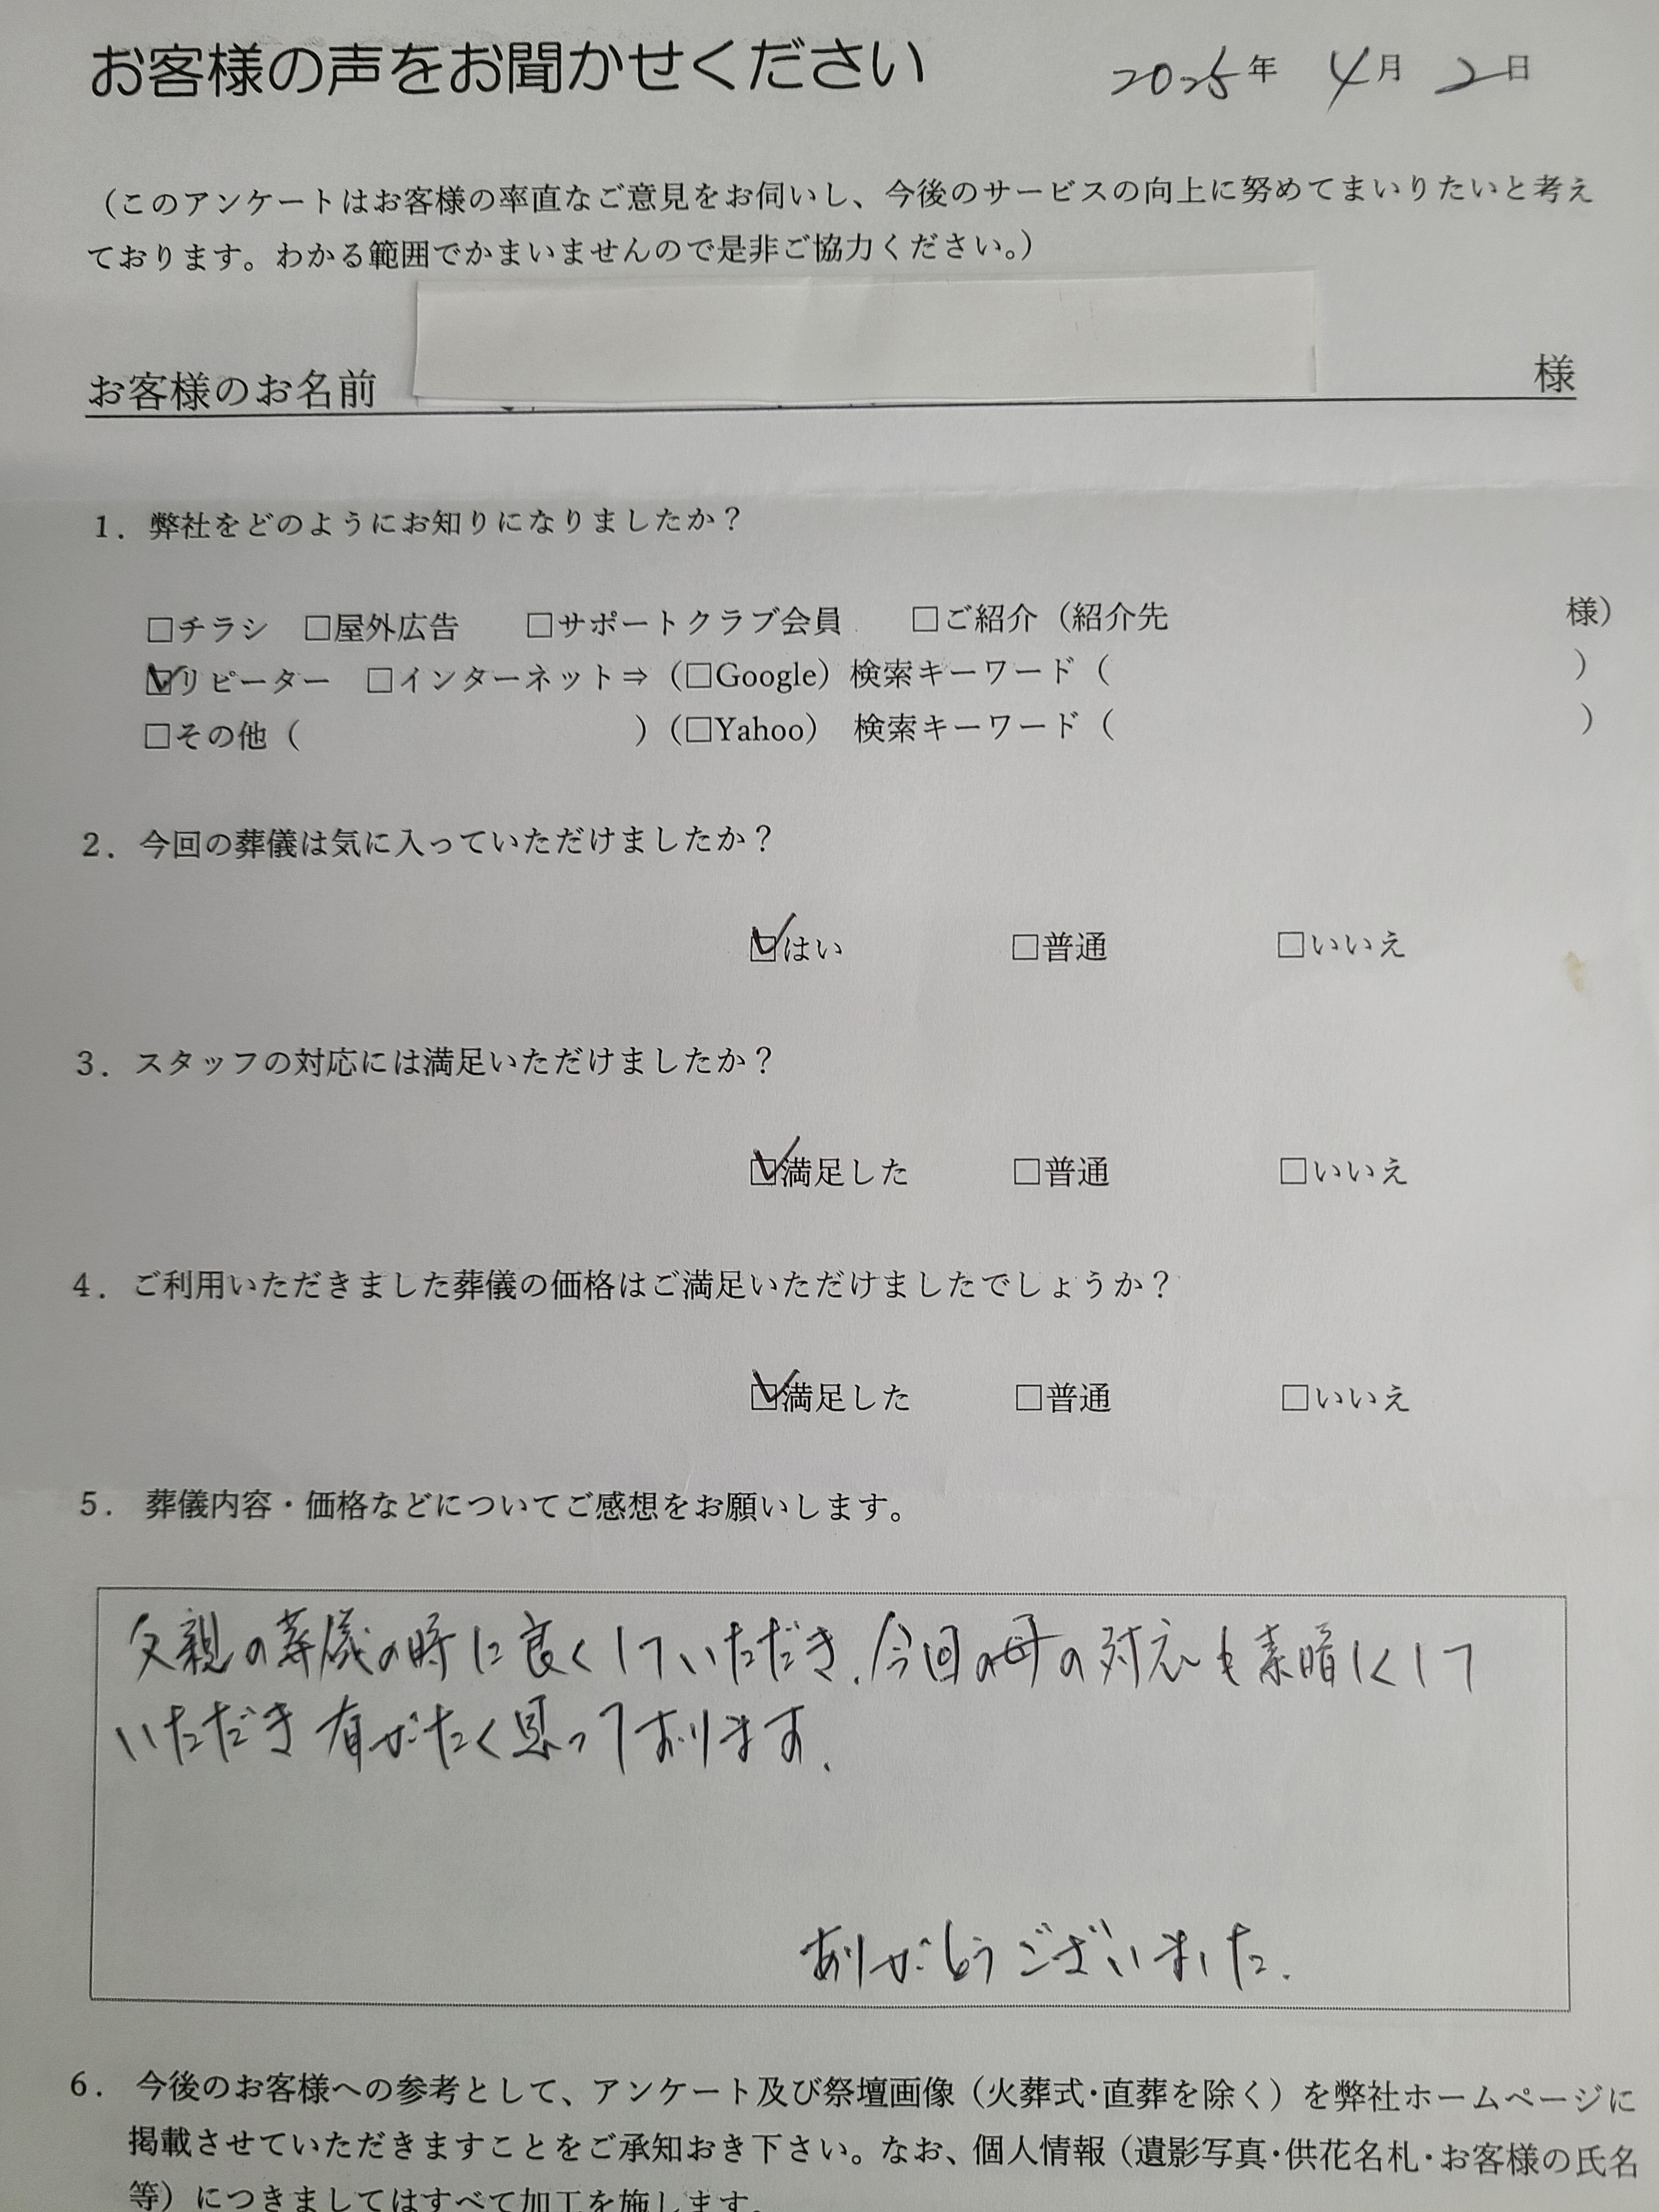 お客様の声をお聞かせください 2025年 4月 2日
（このアンケートはお客様の率直なご意見をお伺いし、今後のサービスの向上に努めてまいりたいと考え
ております。わかる範囲でかまいませんので是非ご協力ください。）
お客様のお名前 様
1．弊社をどのようにお知りになりましたか？
□チラシ □屋外広告 □サポートクラブ会員 □ご紹介（紹介先 様）
☑リピーター □インターネット⇒（□Google）検索キーワード（ ）
□その他（ ）（□Yahoo） 検索キーワード（ ）
2．今回の葬儀は気に入っていただけましたか？
☑はい □普通 □いいえ
3．スタッフの対応には満足いただけましたか？
☑満足した □普通 □いいえ
4．ご利用いただきました葬儀の価格はご満足いただけましたでしょうか？
☑満足した □普通 □いいえ
5． 葬儀内容・価格などについてご感想をお願いします。
父親の葬儀の時に良くしていただき、今回の母の対応も素晴しくして
いただき有がたく思っております。
ありがとうございました。
6． 今後のお客様への参考として、アンケート及び祭壇画像（火葬式・直葬を除く）を弊社ホームページに
掲載させていただきますことをご承知おき下さい。なお、個人情報（遺影写真・供花名札・お客様の氏名
等）につきましてはすべて加工を施します。